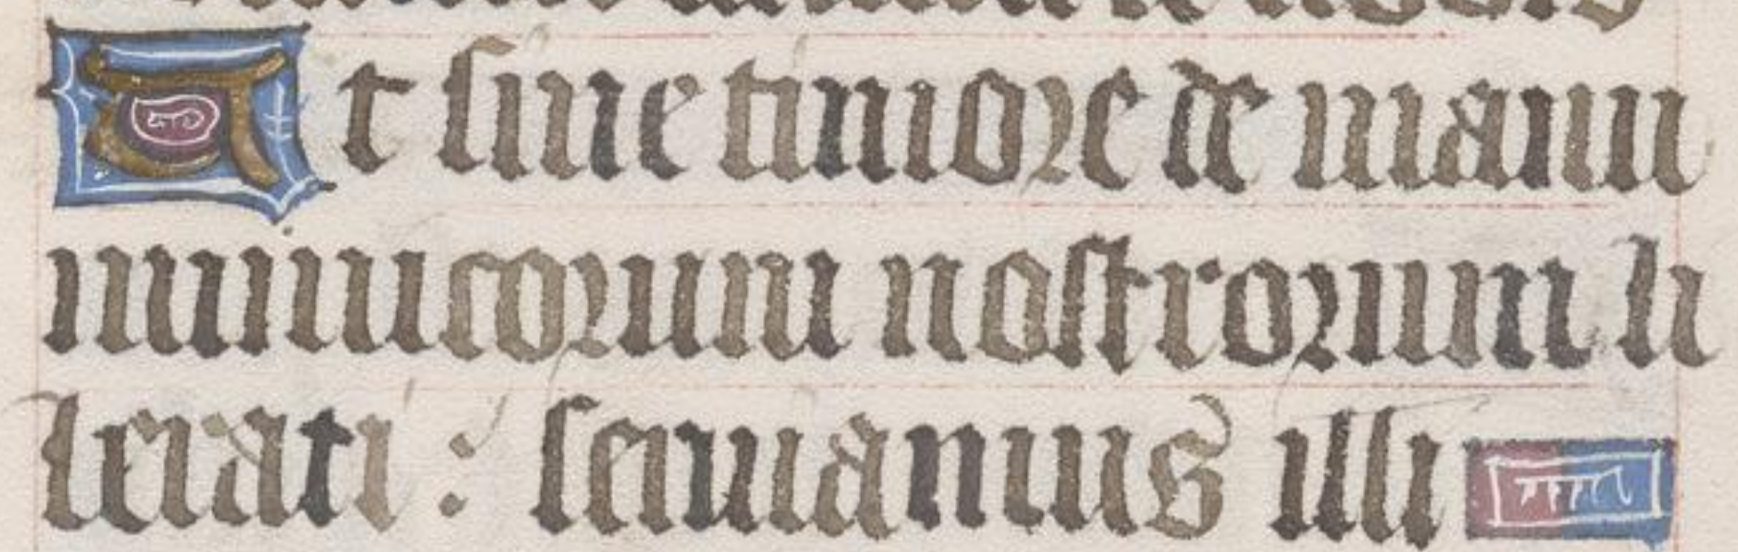 At sine timore de manu
inimicorum nostrorum li
berati : seruiamus illi